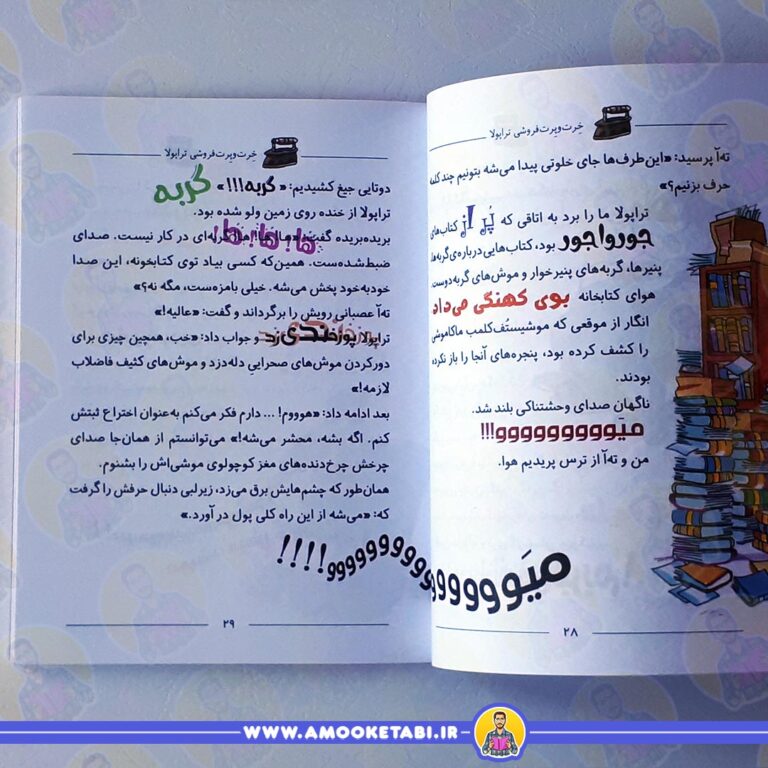 خِرت‌وپِرت‌فروشی تراپولا
ته‌آ پرسید: «این‌طرف‌ها جای خلوتی پیدا می‌شه بتونیم چند کلمه
حرف بزنیم؟»
تراپولا ما را برد به اتاقی که پُر از کتاب‌های
جورواجور بود، کتاب‌هایی درباره‌ی گربه‌ها،
پنیرها، گربه‌های پنیرخوار و موش‌های گربه‌دوست.
هوای کتابخانه بوی کهنگی می‌داد
انگار از موقعی که موشیستُف‌کلمب ماکاموشی
را کشف کرده بود، پنجره‌های آنجا را باز نکرده
بودند.
ناگهان صدای وحشتناکی بلند شد.
میَوووووووووو!!!
من و ته‌آ از ترس پریدیم هوا.
میَووووووووووووووووو!!!!
۲۸
خِرت‌وپِرت‌فروشی تراپولا
دوتایی جیغ کشیدیم: «گربه!!!» گربه
تراپولا از خنده روی زمین ولو شده بود.
بریده‌بریده گفت: «ها! ها! ها! گربه‌ای در کار نیست. صدای
ضبط‌شده‌ست. همین‌که کسی بیاد توی کتابخونه، این صدا
خودبه‌خود پخش می‌شه. خیلی بامزه‌ست، مگه نه؟»
ته‌آ عصبانی رویش را برگرداند و گفت: «عالیه!»
تراپولا پوزخندی زد و جواب داد: «خب، همچین چیزی برای
دورکردن موش‌های صحراییِ دله‌دزد و موش‌های کثیف فاضلاب
لازمه!»
بعد ادامه داد: «هوووم! ... دارم فکر می‌کنم به‌عنوان اختراع ثبتش
کنم. اگه بشه، محشر می‌شه!» می‌توانستم از همان‌جا صدای
چرخش چرخ‌دنده‌های مغز کوچولوی موشی‌اش را بشنوم.
همان‌طور که چشم‌هایش برق می‌زد، زیرلبی دنبال حرفش را گرفت
که: «می‌شه از این راه کلی پول در آورد.»
۲۹
WWW.AMOOKETABI.IR